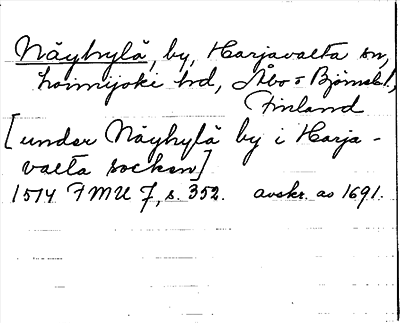 Näyhylä, by, Harjavalta sn,
Loimijoki hd, Åbo o Björnebl,
Finland
[under Näyhylä by i Harja-
valta socken]
1514 FMU 7, s. 352. avskr. av 1691.